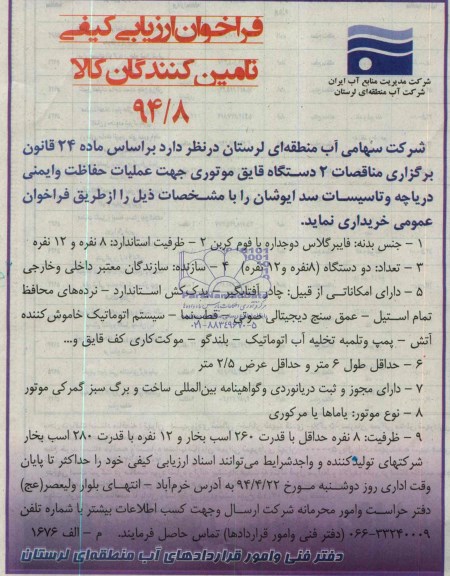 فراخوان ارزیابی کیفی
تامین کنندگان کالا
۹۴/۸
شرکت مدیریت منابع آب ایران
شرکت آب منطقه‌ای لرستان
شرکت سهامی آب منطقه‌ای لرستان درنظر دارد براساس ماده ۲۴ قانون
برگزاری مناقصات ۲ دستگاه قایق موتوری جهت عملیات حفاظت وایمنی
دریاچه وتاسیسات سد ایوشان را با مشخصات ذیل را ازطریق فراخوان
عمومی خریداری نماید.
۱ – جنس بدنه: فایبرگلاس دوجداره با فوم کربن ۲ – ظرفیت استاندارد: ۸ نفره و ۱۲ نفره
۳ – تعداد: دو دستگاه (۸نفره و۱۲نفره) ۴ – سازنده: سازندگان معتبر داخلی وخارجی
۵ – دارای امکاناتی از قبیل: چادرآفتابگیر – یدک‌کش استاندارد – نرده‌های محافظ
تمام استیل – عمق سنج دیجیتالی صوتی – قطب‌نما – سیستم اتوماتیک خاموش‌کننده
آتش – پمپ وتلمبه تخلیه آب اتوماتیک – بلندگو – موکت‌کاری کف قایق و...
۶ – حداقل طول ۶ متر و حداقل عرض ۲/۵ متر
۷ – دارای مجوز و ثبت دریانوردی وگواهینامه بین‌المللی ساخت و برگ سبز گمرکی موتور
۸ – نوع موتور: یاماها یا مرکوری
۹ – ظرفیت: ۸ نفره حداقل با قدرت ۲۶۰ اسب بخار و ۱۲ نفره با قدرت ۲۸۰ اسب بخار
شرکتهای تولیدکننده و واجدشرایط می‌توانند اسناد ارزیابی کیفی خود را حداکثر تا پایان
وقت اداری روز دوشنبه مورخ ۹۴/۴/۲۲ به آدرس خرم‌آباد – انتهای بلوار ولیعصر(عج)
دفتر حراست وامور محرمانه شرکت ارسال وجهت کسب اطلاعات بیشتر با شماره تلفن
۰۶۶-۳۳۲۴۰۰۰۹ (دفتر فنی وامور قراردادها) تماس حاصل فرمایند. م – الف ۱۶۷۶
دفتر فنی وامور قراردادهای آب منطقه‌ای لرستان